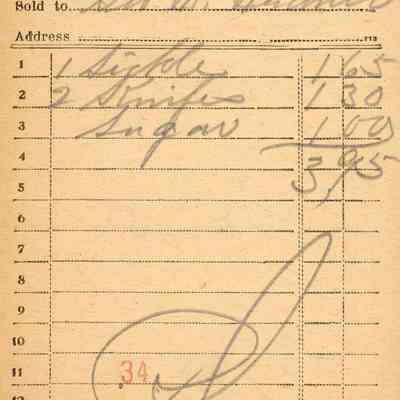 Sold to
Address
1 1 Sickle 1 65
2 2 Knifes 1 30
3 Sugar 1 00
4 3,95
5
6
7
8
9
10
11 34
12